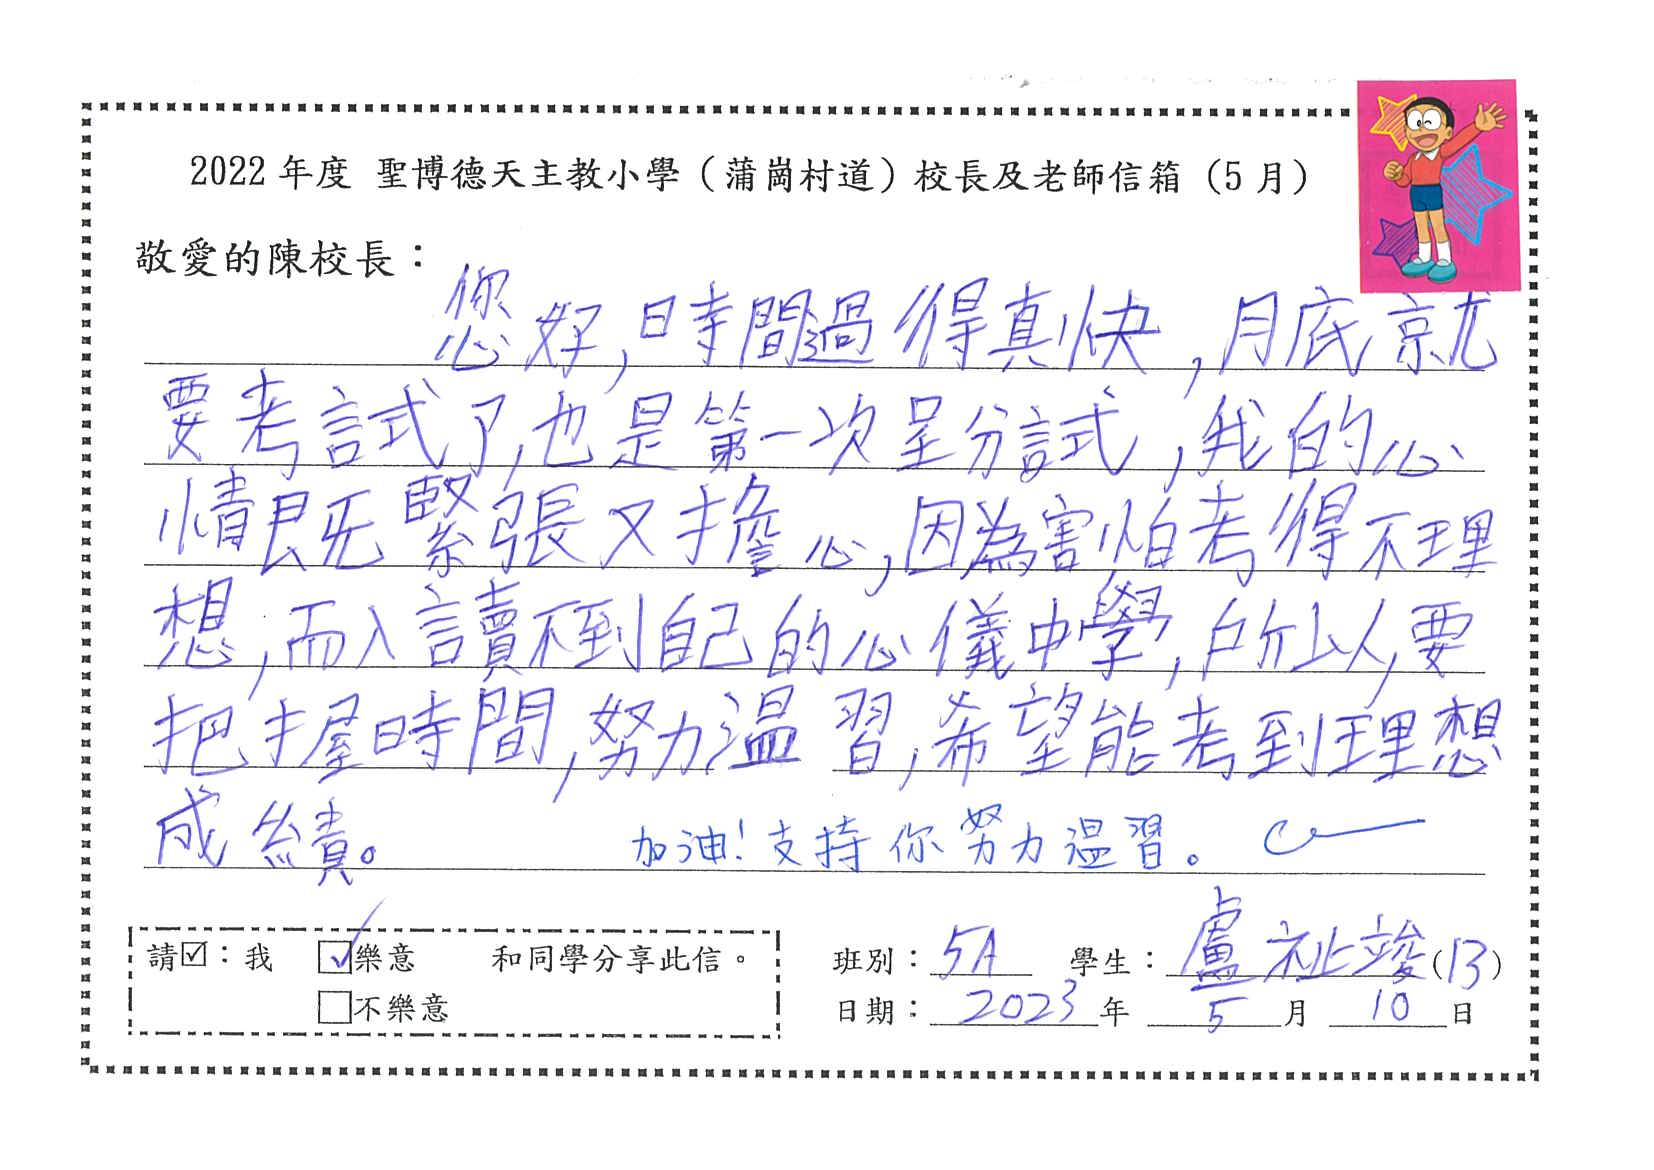 2022 年度 聖博德天主教小學（蒲崗村道）校長及老師信箱（5 月）
敬愛的陳校長：
您好，時間過得真快，月底就
要考試了，也是第一次呈分試，我的心
情既緊張又擔心，因為害怕考得不理
想，而入讀不到自己的心儀中學，所以，要
把握時間，努力溫習，希望能考到理想
成績。 加油！支持你努力溫習。
請☑：我 ☑樂意 和同學分享此信。
□不樂意
班別：5A 學生：盧祉竣(13)
日期：2023年 5月 10日